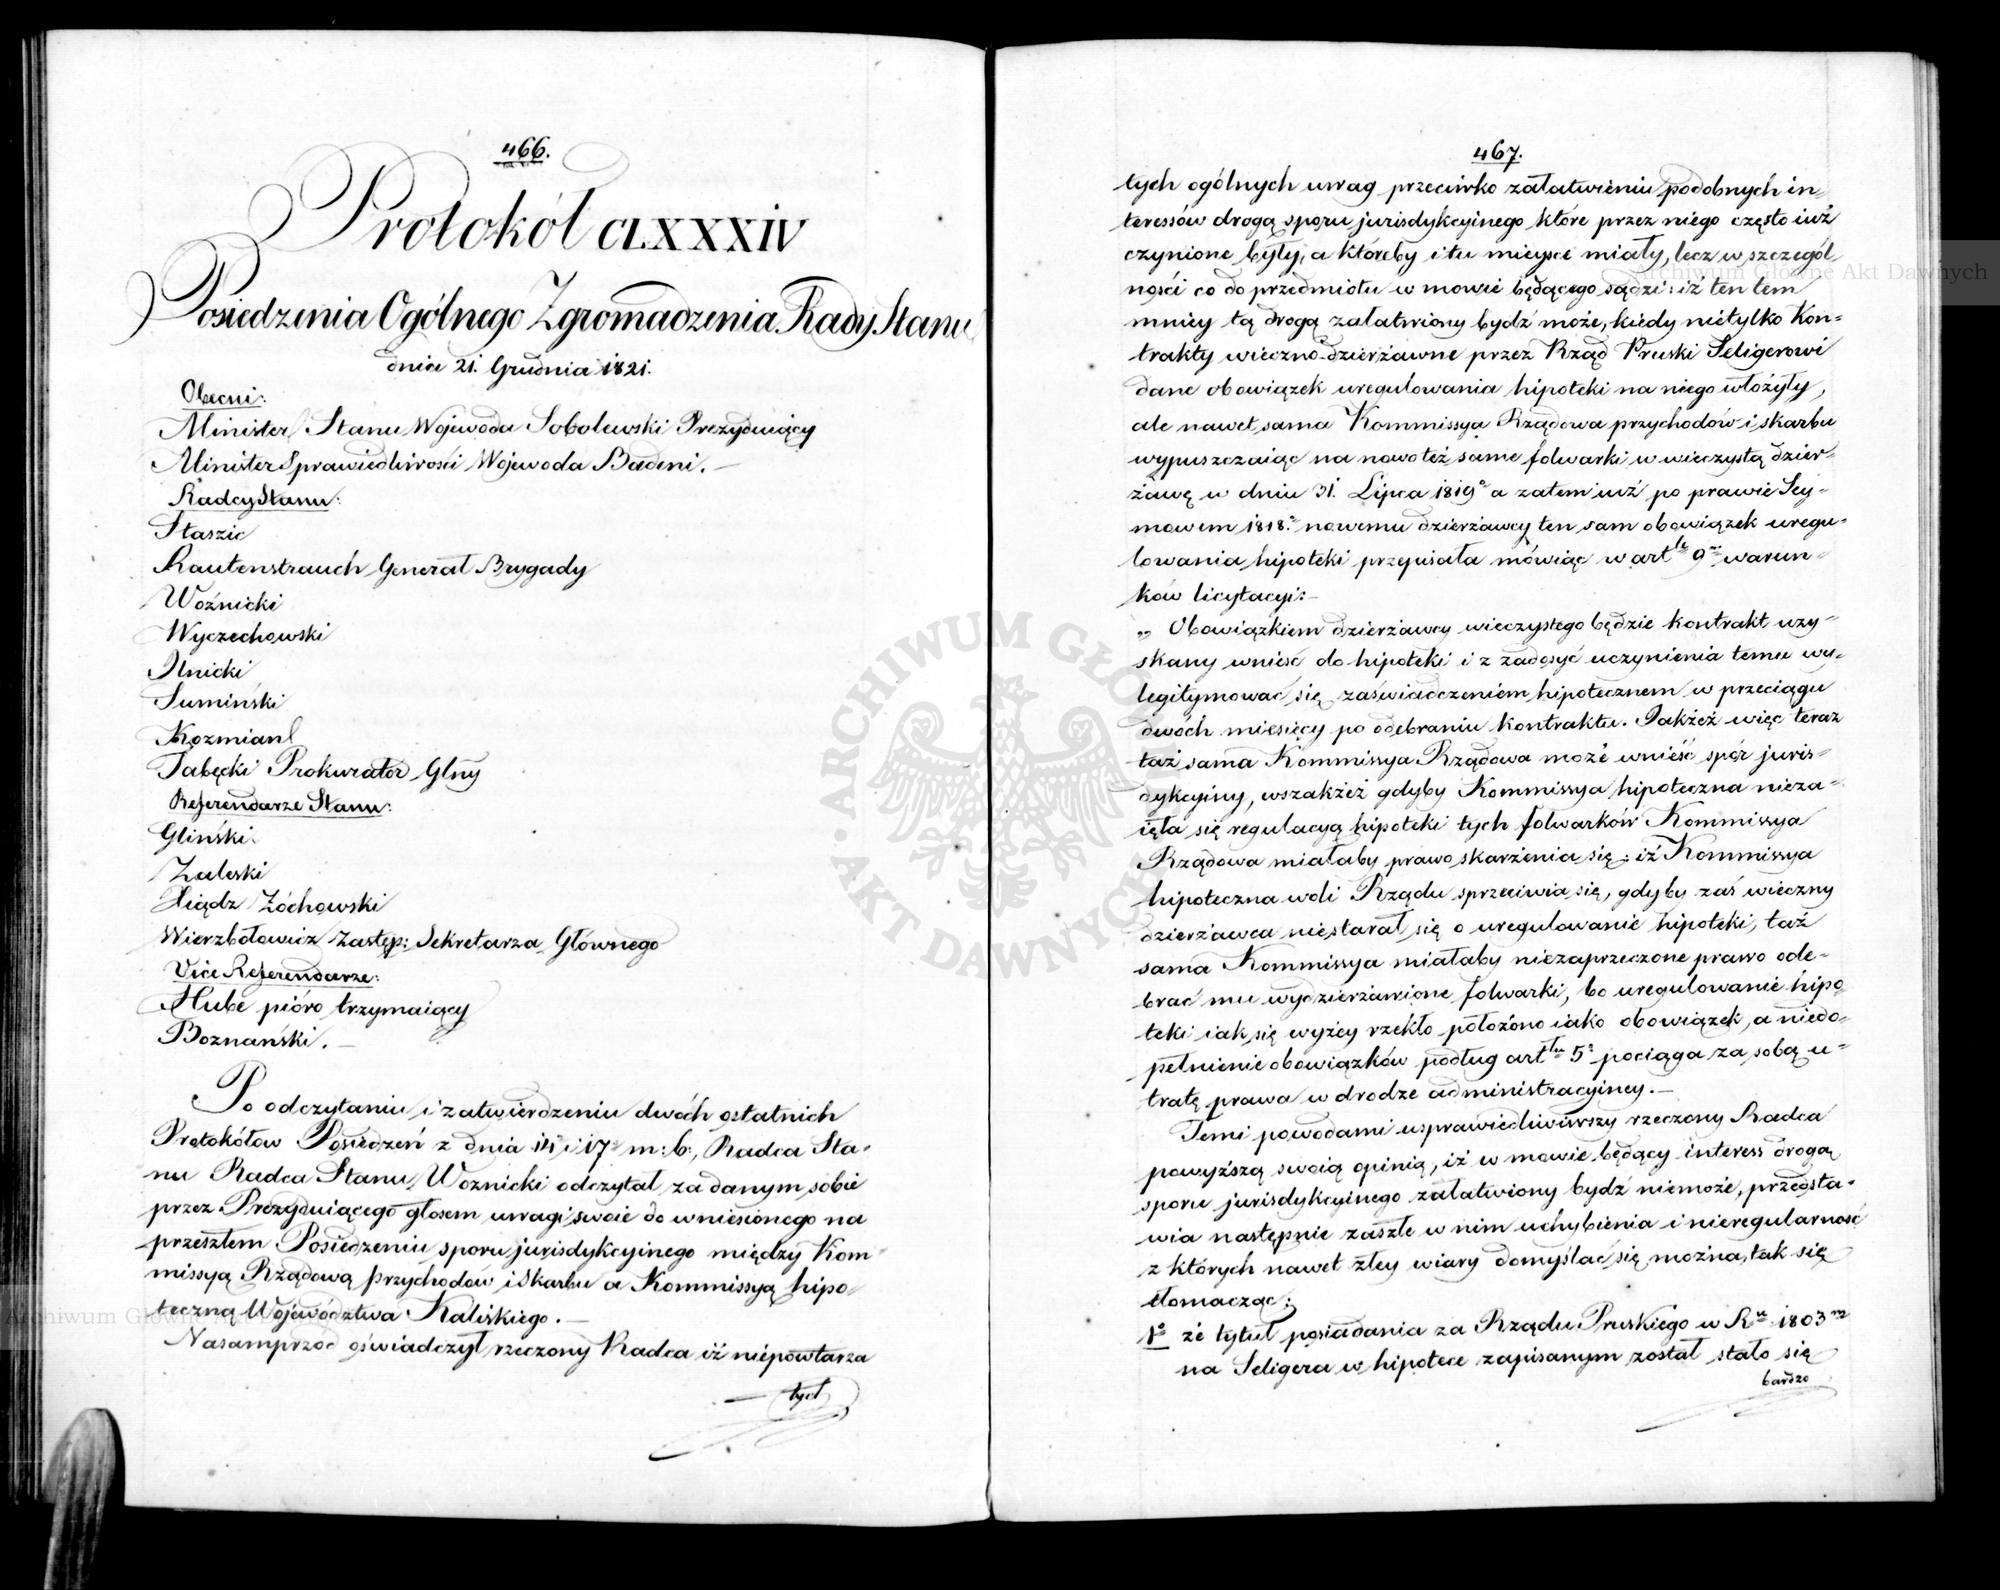 466.
Protokół CLXXXIV
Posiedzenia Ogólnego Zgromadzenia Rady Stanu
dnia 21. Grudnia 1821.
Obecni:
Minister Stanu Wojewoda Sobolewski Prezyduiący
Minister Sprawiedliwości Wojewoda Badeni. —
Radcy Stanu:
Staszic
Rautenstrauch Generał Brygady
Woźnicki
Wyczechowski
Ilnicki
Sumiński
Kozmian
Tabęcki Prokurator Głny
Referendarze Stanu:
Gliński
Zaleski
Xiądz Żóchowski
Wierzbołowicz Zastęp: Sekretarza Głównego
Vice Referendarze:
Hube pióro trzymaiący
Boznański. —
Po odczytaniu i zatwierdzeniu dwóch ostatnich
Protokółów Posiedzeń z dnia 14 i 17 m: b:, Radca Sta-
nu Radca Stanu Woznicki odczytał za danym sobie
przez Prezyduiącego głosem uwagi swoie do wniesionego na
przeszłem Posiedzeniu sporu jurisdykcyinego między Kom-
missyą Rządową przychodów i Skarbu a Kommissyą hipo-
teczną Województwa Kaliskiego. —
Nasamprzód oświadczył rzeczony Radca iż niepowtarza
— tych
467.
tych ogólnych uwag przeciwko załatwieniu podobnych in-
teressów drogą sporu jurisdykcyinego które przez niego często iuż
czynione były, a któreby i tu mieysce miały, lecz w szczegól-
ności co do przedmiotu w mowie będącego sądzi: iż ten tem
mniéy tą drogą załatwiony bydź może, kiedy nietylko Kon-
trakty wieczno-dzierżawne przez Rząd Pruski Seligerowi
dane obowiązek uregulowania hipoteki na niego włożyły,
ale nawet sama Kommissya Rządowa przychodów i skarbu
wypuszczaiąc na nowo też same folwarki w wieczystą dzier-
żawę w dniu 31. Lipca 1819 a zatem iuż po prawie Sey-
mowem 1818. nowemu dzierżawcy ten sam obowiązek uregu-
lowania hipoteki przepisała mówiąc w art le 9 m warun-
ków licytacyi: —
„ Obowiązkiem dzierżawcy wieczystego będzie kontrakt uzy-
skany wnieść do hipoteki i z zadosyć uczynienia temu wy-
legitymować się zaświadczeniem hipotecznem w przeciągu
dwóch miesięcy po odebraniu kontraktu. Jakżeż więc teraz
taż sama Kommissya Rządowa może wnieść spór juris-
dykcyiny, wszakżeż gdyby Kommissya hipoteczna nieza-
ięła się regulacyą hipoteki tych folwarków Kommissya
Rządowa miałaby prawo skarżenia się: iż Kommissya
hipoteczna woli Rządu sprzeciwia się, gdyby zaś wieczny
dzierżawca niestarał się o uregulowanie hipoteki, taż
sama Kommissya miałaby niezaprzeczone prawo ode-
brać mu wydzierżawione folwarki, bo uregulowanie hipo
teki iak się wyżey rzekło położono iako obowiązek, a niedo-
pełnienie obowiązków podług art łu 5 pociąga za sobą u-
tratę prawa w drodze administracyiney. —
Temi powodami usprawiedliwiwszy rzeczony Radca
powyższą swoią opinią, iż w mowie będący interess drogą
sporu jurisdykcyinego załatwiony bydź niemoże, przedsta-
wia następnie zaszłe w nim uchybienia i nieregularność
z których nawet złey wiary domyślać się można, tak się
tłomacząc:
1o że tytuł posiadania za Rządu Pruskiego w Ru 1803 m
na Seligera w hipotece zapisanym został stało się
bardzo
Archiwum Główne Akt Dawnych
ARCHIWUM GŁÓWNE AKT DAWNYCH
Archiwum Główne Akt Dawnych